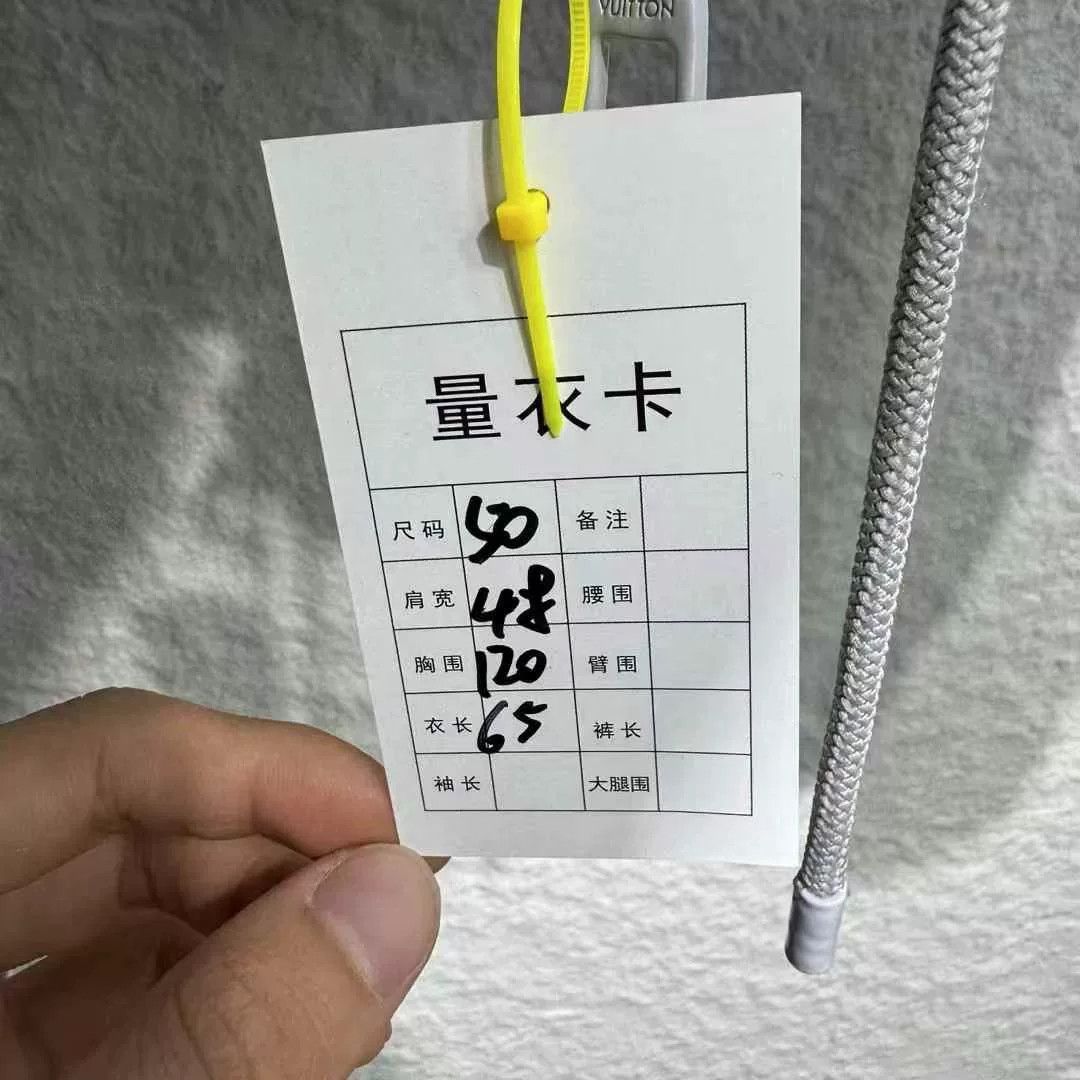 VUITTON
量衣卡
尺码 50 备注
肩宽 48 腰围
胸围 120 臂围
衣长 65 裤长
袖长 大腿围